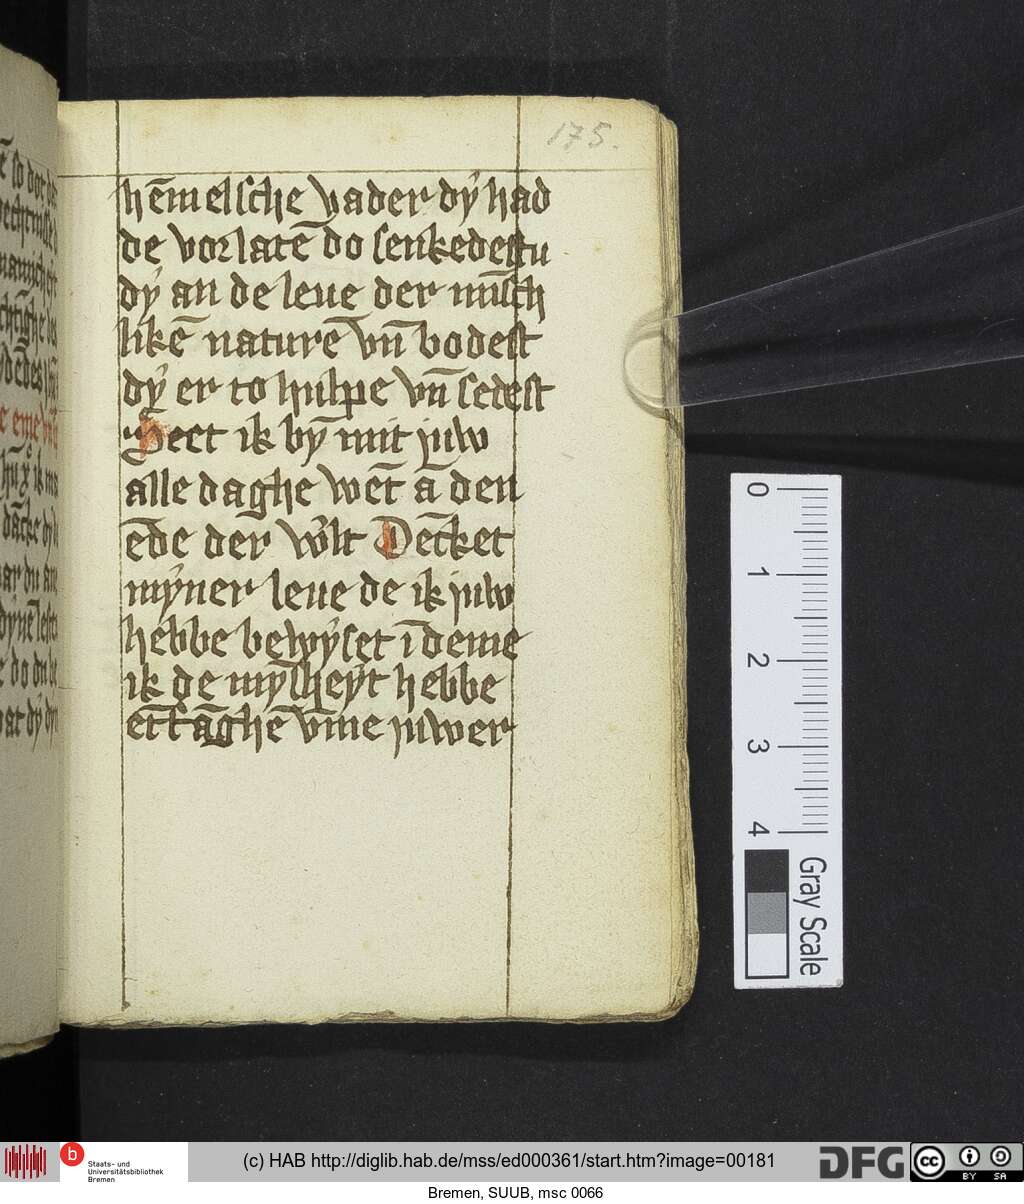 175.
hēmelsche vader dẏ had
de vorlatē do senkedestu
dẏ an de leue der mīsch
likē naturē vn̄ bodest
dẏ er to hulpe vn̄ sedest
Seet ik bȳ mit juw
alle daghe wēt ā den
ēde der w̉lt Dēcket
mẏner leue de ik juw
hebbe bewẏset ī deme
ik de mȳsheẏt hebbe
ētfāghē vm̄e juwer
0
1
2
3
4
Gray Scale
b Staats- und
Universitätsbibliothek
Bremen
(c) HAB http://diglib.hab.de/mss/ed000361/start.htm?image=00181
DFG
cc BY SA
Bremen, SUUB, msc 0066